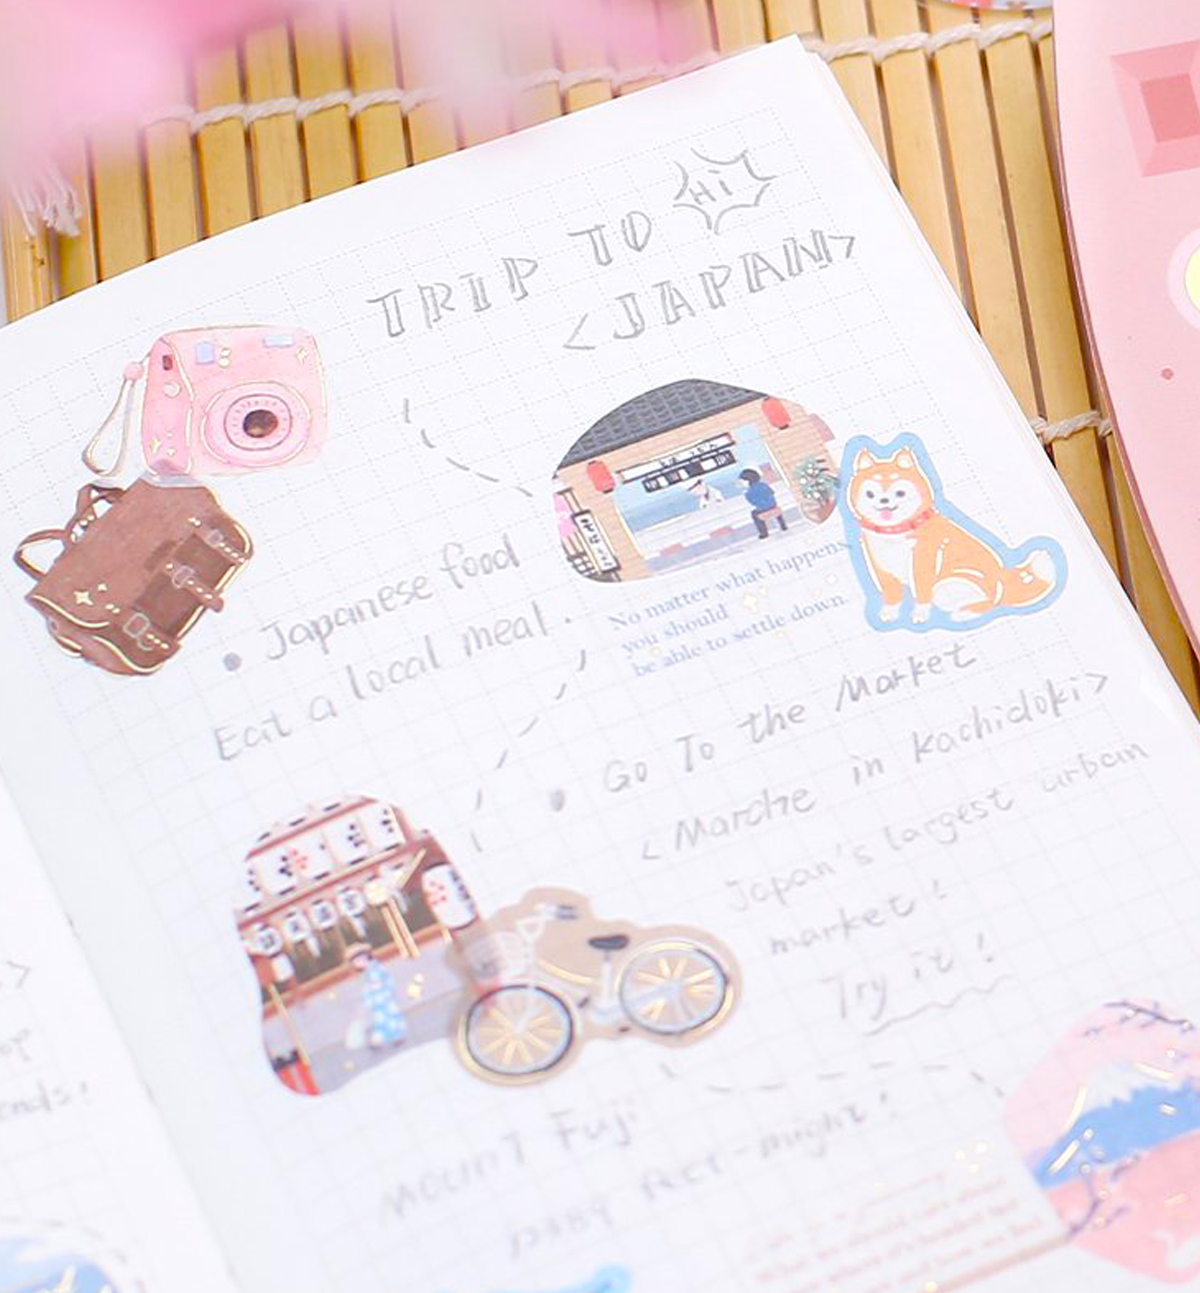 Hi
TRIP TO
<JAPAN>
• Japanese food
Eat a local meal.
No matter what happens,
you should
be able to settle down.
• Go To the Market
<Marche in Kachidoki>
Japan's largest urban
market!
Try it!
Mount Fuji